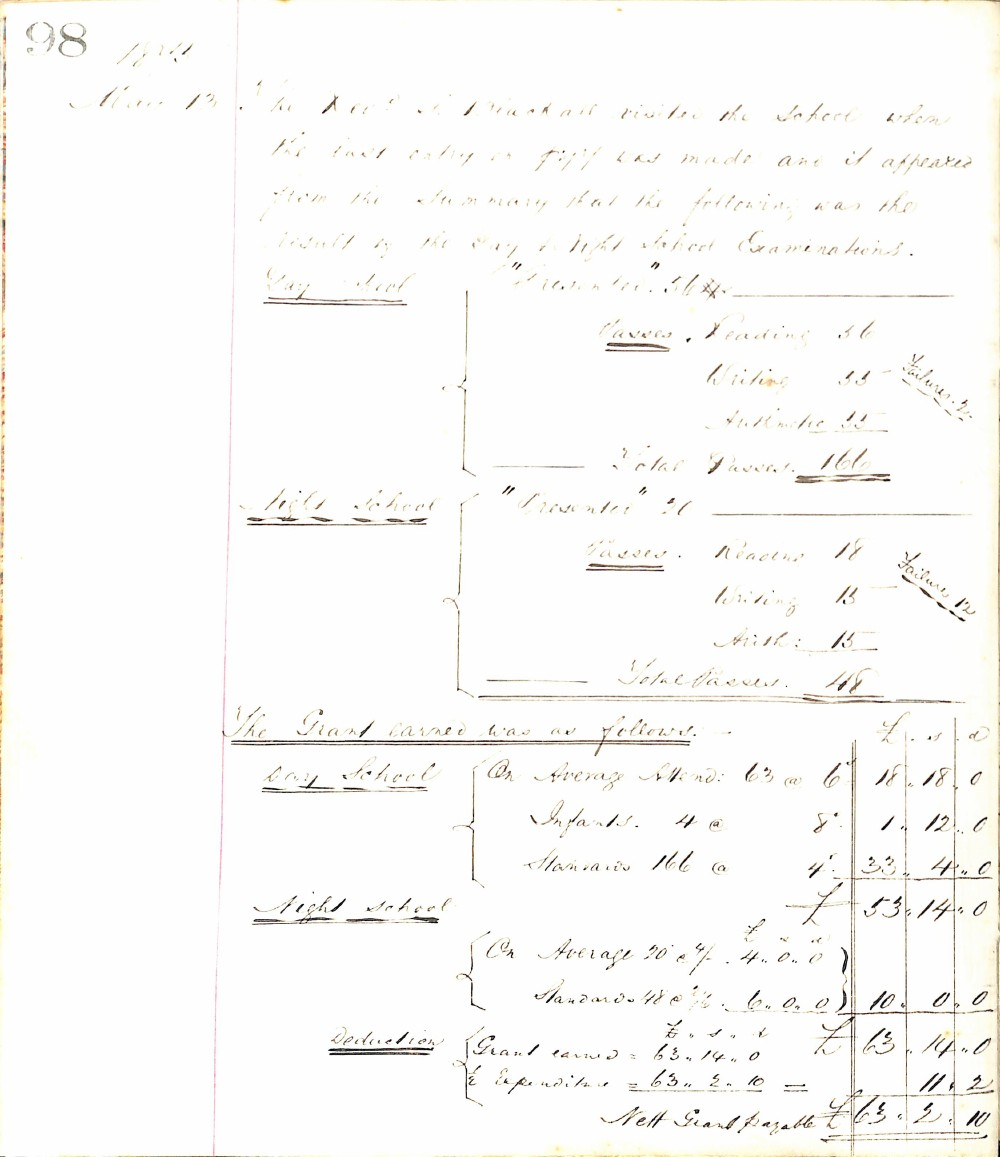 98
Mar 13 The Rev.d visited the School when
the last entry on page was made and it appeared
from the Summary that the following was the
result of the Day & Night School Examinations.
Day School "Presented" 56
Passes. Reading 56
Writing 55 Failures 2
Arithmetic 55
Total Passes. 166
Night School "Presented" 20
Passes. Reading 18
Writing 15 Failures 12
Arith: 15
Total Passes. 48
The Grant earned was as follows. £ . s . d
Day School On Average Attend: 63 @ 6/ 18 " 18 " 0
Infants. 4 @ 8/ 1 " 12 " 0
Standards 166 @ 4/ 33 " 4 " 0
Night School £ 53 " 14 " 0
£ s d
On Average 20 @ 4/ . 4 " 0 " 0
Standards 48 @ 2/6 . 6 " 0 " 0 10 " 0 " 0
£ " s " d
Deduction Grant earned = 63 " 14 " 0 £ 63 " 14 " 0
½ Expenditure = 63 " 2 " 10 = 11 " 2
Nett Grant payable £ 63 " 2 " 10